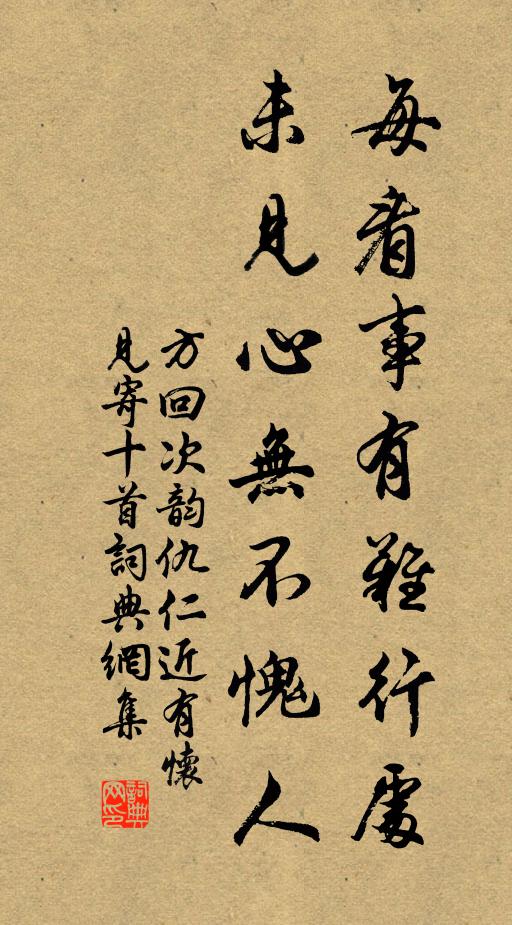 每看事有難行處
未見心無不愧人
方回次韵仇仁近有懷
見寄十首詞典網集
詞典网印